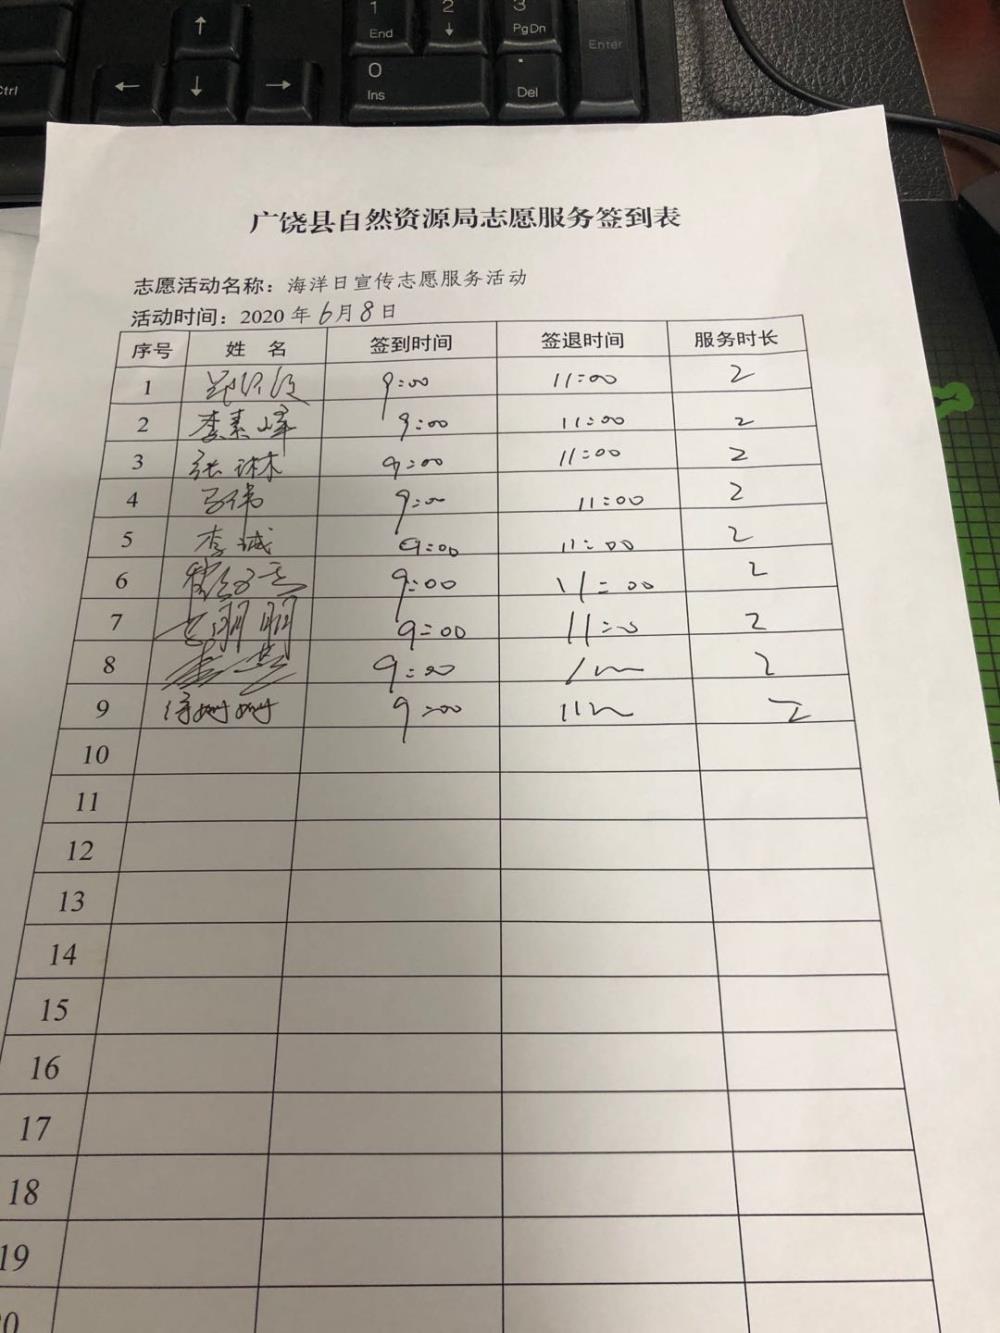 1
End
2
↓
3
PgDn
Enter
↑
Ctrl
←
↓
→
0
Ins
.
Del
广饶县自然资源局志愿服务签到表
志愿活动名称：海洋日宣传志愿服务活动
活动时间：2020 年 6月8日
序号 姓 名 签到时间 签退时间 服务时长
1 9:00 11:00 2
2 李素峰 9:00 11:00 2
3 张琳 9:00 11:00 2
4 马伟 9:00 11:00 2
5 李诚 9:00 11:00 2
6 9:00 11:00 2
7 明明 9:00 11:00 2
8 李 9:00 2
9 姗姗 9:00 2
10
11
12
13
14
15
16
17
18
19
20